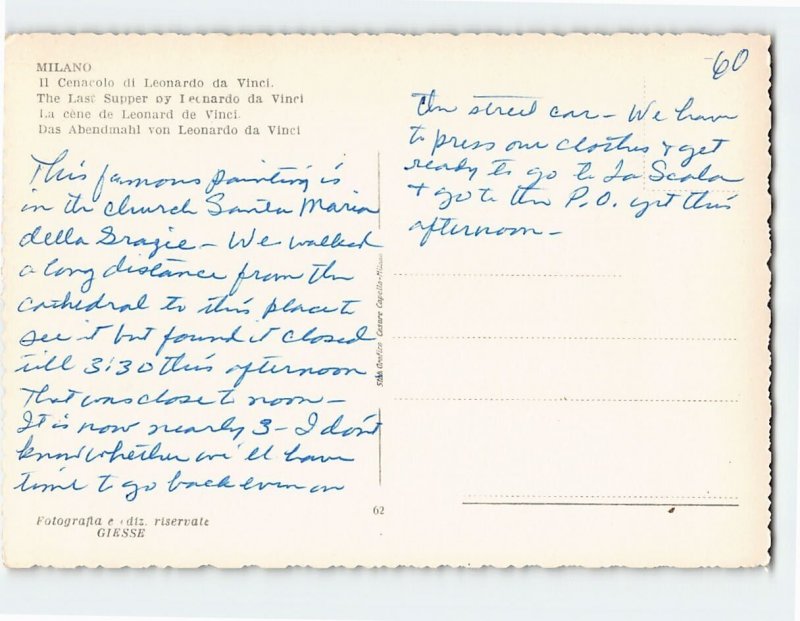 MILANO
Il Cenacolo di Leonardo da Vinci.
The Last Supper by Leonardo da Vinci
La cène de Leonard de Vinci.
Das Abendmahl von Leonardo da Vinci
This famous painting is
in the church Santa Maria
della Grazie - We walked
a long distance from the
cathedral to this place to
see it but found it closed
till 3:30 this afternoon
That was close to noon -
It is now nearly 3 - I don't
know whether we'll have
time to go back even on
Fotografia e ediz. riservate
GIESSE
62
Stab. Grafico Cesare Capello-Milano
-60
the street car - We have
to press our clothes & get
ready to go to La Scala
& go to the P.O. yet this
afternoon -